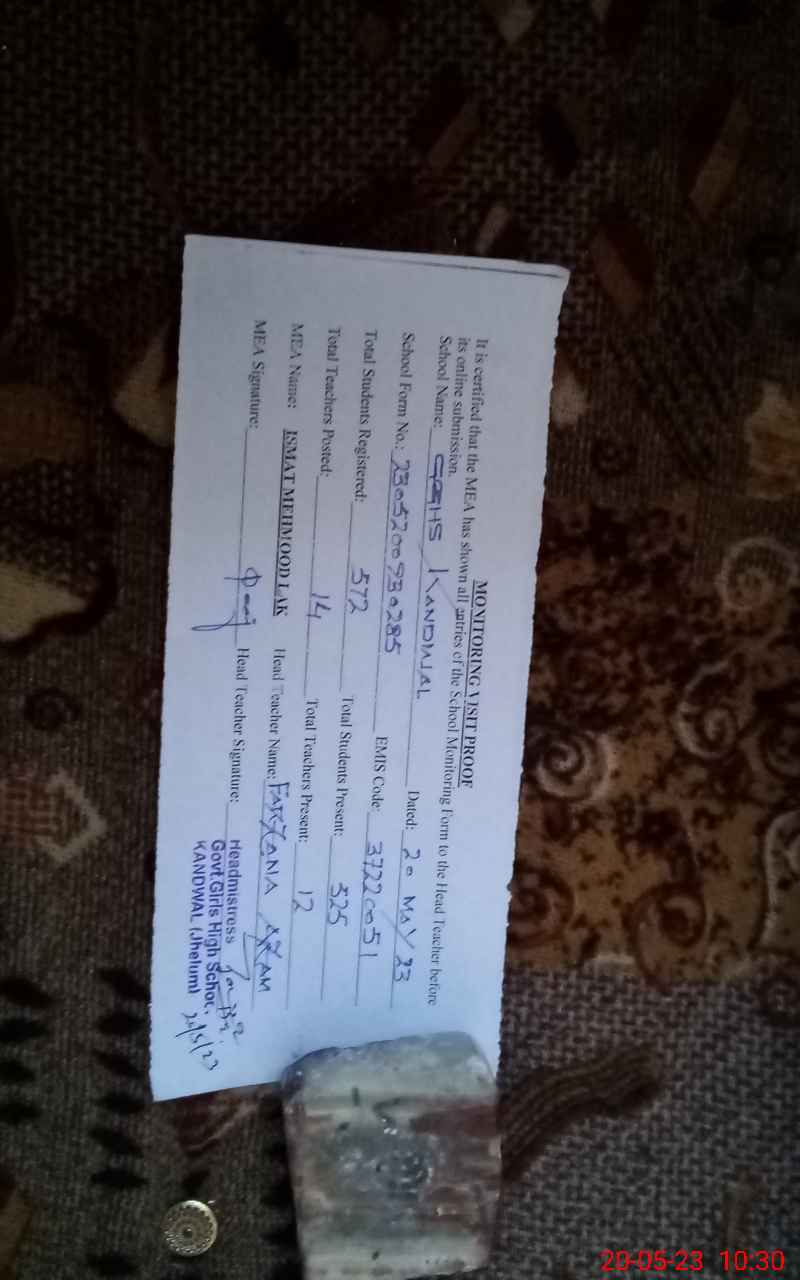 MONITORING VISIT PROOF
It is certified that the MEA has shown all entries of the School Monitoring Form to the Head Teacher before
its online submission.
School Name: GGHS KANDWAL Dated: 20 MAY 23
School Form No.: 2305200930285 EMIS Code: 37220051
Total Students Registered: 572 Total Students Present: 525
Total Teachers Posted: 14 Total Teachers Present: 12
MEA Name: ISMAT MEHMOOD LAK Head Teacher Name: FARZANA AZAM
MEA Signature: Head Teacher Signature:
Headmistress
Govt.Girls High School,
KANDWAL (Jhelum) 20/5/23
20-05-23 10:30